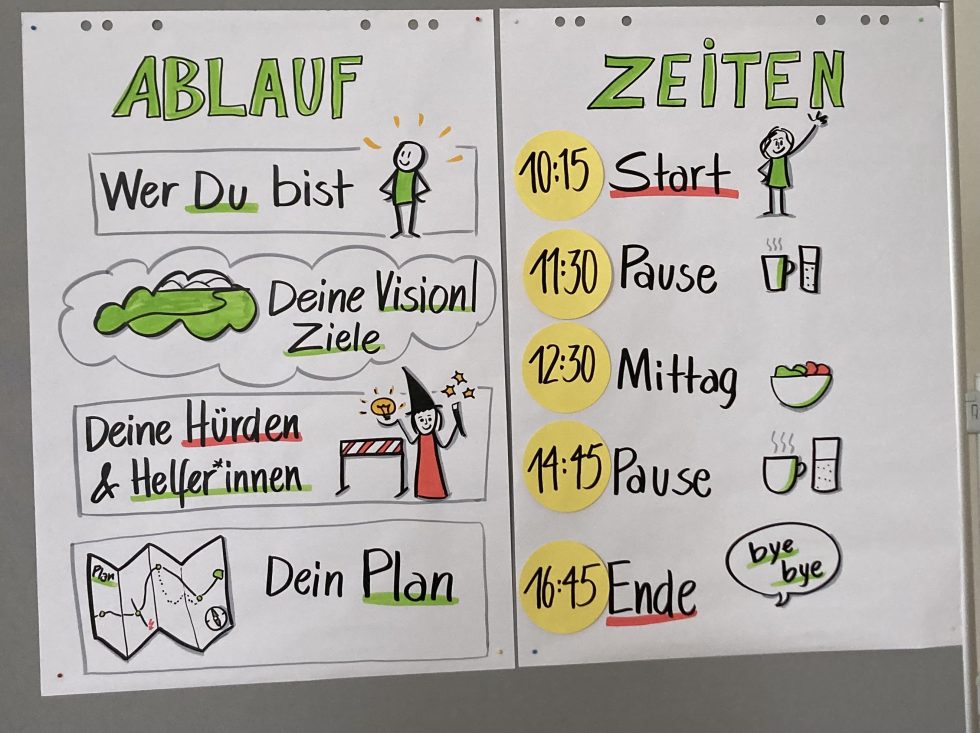 ABLAUF
Wer Du bist
Deine Vision/
Ziele
Deine Hürden
& Helfer*innen
Plan
Dein Plan
ZEITEN
10:15 Start
11:30 Pause
12:30 Mittag
14:45 Pause
16:45 Ende
bye
bye